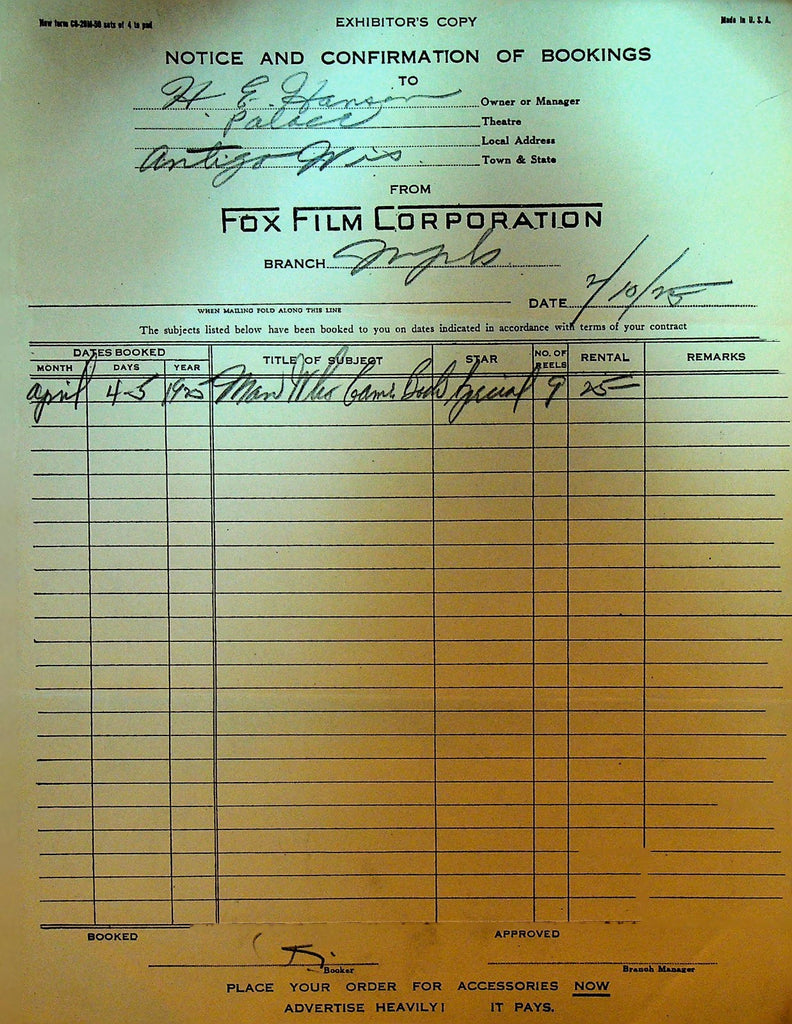 New form CS-29M-50 sets of 4 to pad
EXHIBITOR'S COPY
Made in U. S. A.
NOTICE AND CONFIRMATION OF BOOKINGS
TO
H. E. Hanson Owner or Manager
Palace Theatre
Local Address
Antigo Wis. Town & State
FROM
FOX FILM CORPORATION
BRANCH Mpls
DATE 2/10/25
WHEN MAILING FOLD ALONG THIS LINE
The subjects listed below have been booked to you on dates indicated in accordance with terms of your contract
DATES BOOKED
MONTH DAYS YEAR TITLE OF SUBJECT STAR NO. OF REELS RENTAL REMARKS
April 4-5 1925 Man Who Came Back Special 9 25—
BOOKED
APPROVED
Booker
Branch Manager
PLACE YOUR ORDER FOR ACCESSORIES NOW
ADVERTISE HEAVILY! IT PAYS.